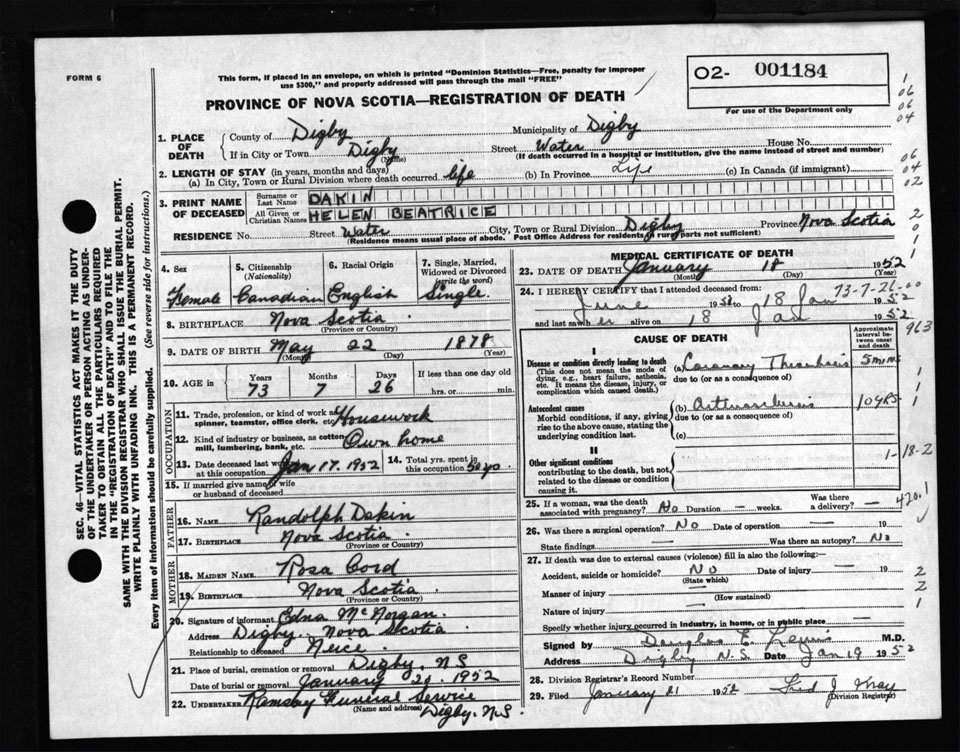 FORM 6
This form, if placed in an envelope, on which is printed "Dominion Statistics—Free, penalty for improper
use $300," and properly addressed will pass through the mail "FREE"
PROVINCE OF NOVA SCOTIA—REGISTRATION OF DEATH
02- 001184
For use of the Department only
1. PLACE OF DEATH
County of Digby Municipality of Digby
If in City or Town Digby (Name) Street Water House No.
(If death occurred in a hospital or institution, give the name instead of street and number)
2. LENGTH OF STAY (in years, months and days)
(a) In City, Town or Rural Division where death occurred life (b) In Province Life (c) In Canada (if immigrant)
3. PRINT NAME OF DECEASED
Surname or Last Name DAKIN
All Given or Christian Names HELEN BEATRICE
RESIDENCE No. Street Water City, Town or Rural Division Digby Province Nova Scotia
(Residence means usual place of abode. Post Office Address for residents in rural parts not sufficient)
4. Sex Female
5. Citizenship (Nationality) Canadian
6. Racial Origin English
7. Single, Married, Widowed or Divorced (write the word) Single
8. BIRTHPLACE Nova Scotia
(Province or Country)
9. DATE OF BIRTH May 22 1878
(Month) (Day) (Year)
10. AGE in Years 73 Months 7 Days 26 If less than one day old hrs. or min.
OCCUPATION
11. Trade, profession, or kind of work as spinner, teamster, office clerk, etc. Housework
12. Kind of industry or business, as cotton mill, lumbering, bank, etc. Own home
13. Date deceased last worked at this occupation Jan 17. 1952
14. Total yrs. spent in this occupation 50 yo.
15. If married give name of wife or husband of deceased
FATHER
16. NAME Randolph Dakin
17. BIRTHPLACE Nova Scotia
(Province or Country)
MOTHER
18. MAIDEN NAME Rosa Cord
19. BIRTHPLACE Nova Scotia
(Province or Country)
20. Signature of informant Edna McNorgan.
Address Digby. Nova Scotia
Relationship to deceased Neice
21. Place of burial, cremation or removal Digby. NS
Date of burial or removal January 21. 1952
22. UNDERTAKER Ramsay Funeral Service
(Name and address) Digby. N.S.
MEDICAL CERTIFICATE OF DEATH
23. DATE OF DEATH January 18 1952
(Month) (Day) (Year)
73-7-26-00
24. I HEREBY CERTIFY that I attended deceased from:
June 1951 to 18 Jan 1952
and last saw her alive on 18 Jan 1952
CAUSE OF DEATH
Approximate interval between onset and death
I
Disease or condition directly leading to death (a) Coronary Thrombosis 5 mins
(This does not mean the mode of dying, e.g., heart failure, asthenia, etc. It means the disease, injury, or complication which caused death.)
due to (or as a consequence of)
Antecedent causes (b) 10 yrs
Morbid conditions, if any, giving rise to the above cause, stating the underlying condition last.
due to (or as a consequence of)
(c)
II
Other significant conditions
contributing to the death, but not related to the disease or condition causing it.
1-18-2
25. If a woman, was the death associated with pregnancy? No Duration — weeks. Was there a delivery? —
420.1
26. Was there a surgical operation? No Date of operation — 19
State findings — Was there an autopsy? No
27. If death was due to external causes (violence) fill in also the following:—
Accident, suicide or homicide? No Date of injury — 19
(State which)
Manner of injury —
(How sustained)
Nature of injury —
Specify whether injury occurred in industry, in home, or in public place —
Signed by Douglas E. Lewis M.D.
Address Digby N.S. Date Jan 19 1952
28. Division Registrar's Record Number
29. Filed January 21 1952 Fred J
(Division Registrar)
SEC. 46—VITAL STATISTICS ACT MAKES IT THE DUTY
OF THE UNDERTAKER OR PERSON ACTING AS UNDER-
TAKER TO OBTAIN ALL THE PARTICULARS REQUIRED
IN THE "REGISTRATION OF DEATH" AND TO FILE THE
SAME WITH THE DIVISION REGISTRAR WHO SHALL ISSUE THE BURIAL PERMIT.
WRITE PLAINLY WITH UNFADING INK. THIS IS A PERMANENT RECORD.
Every item of information should be carefully supplied. (See reverse side for instructions.)
1
06
06
04
06
04
02
2
0
1
963
1
1
1
2
2
1